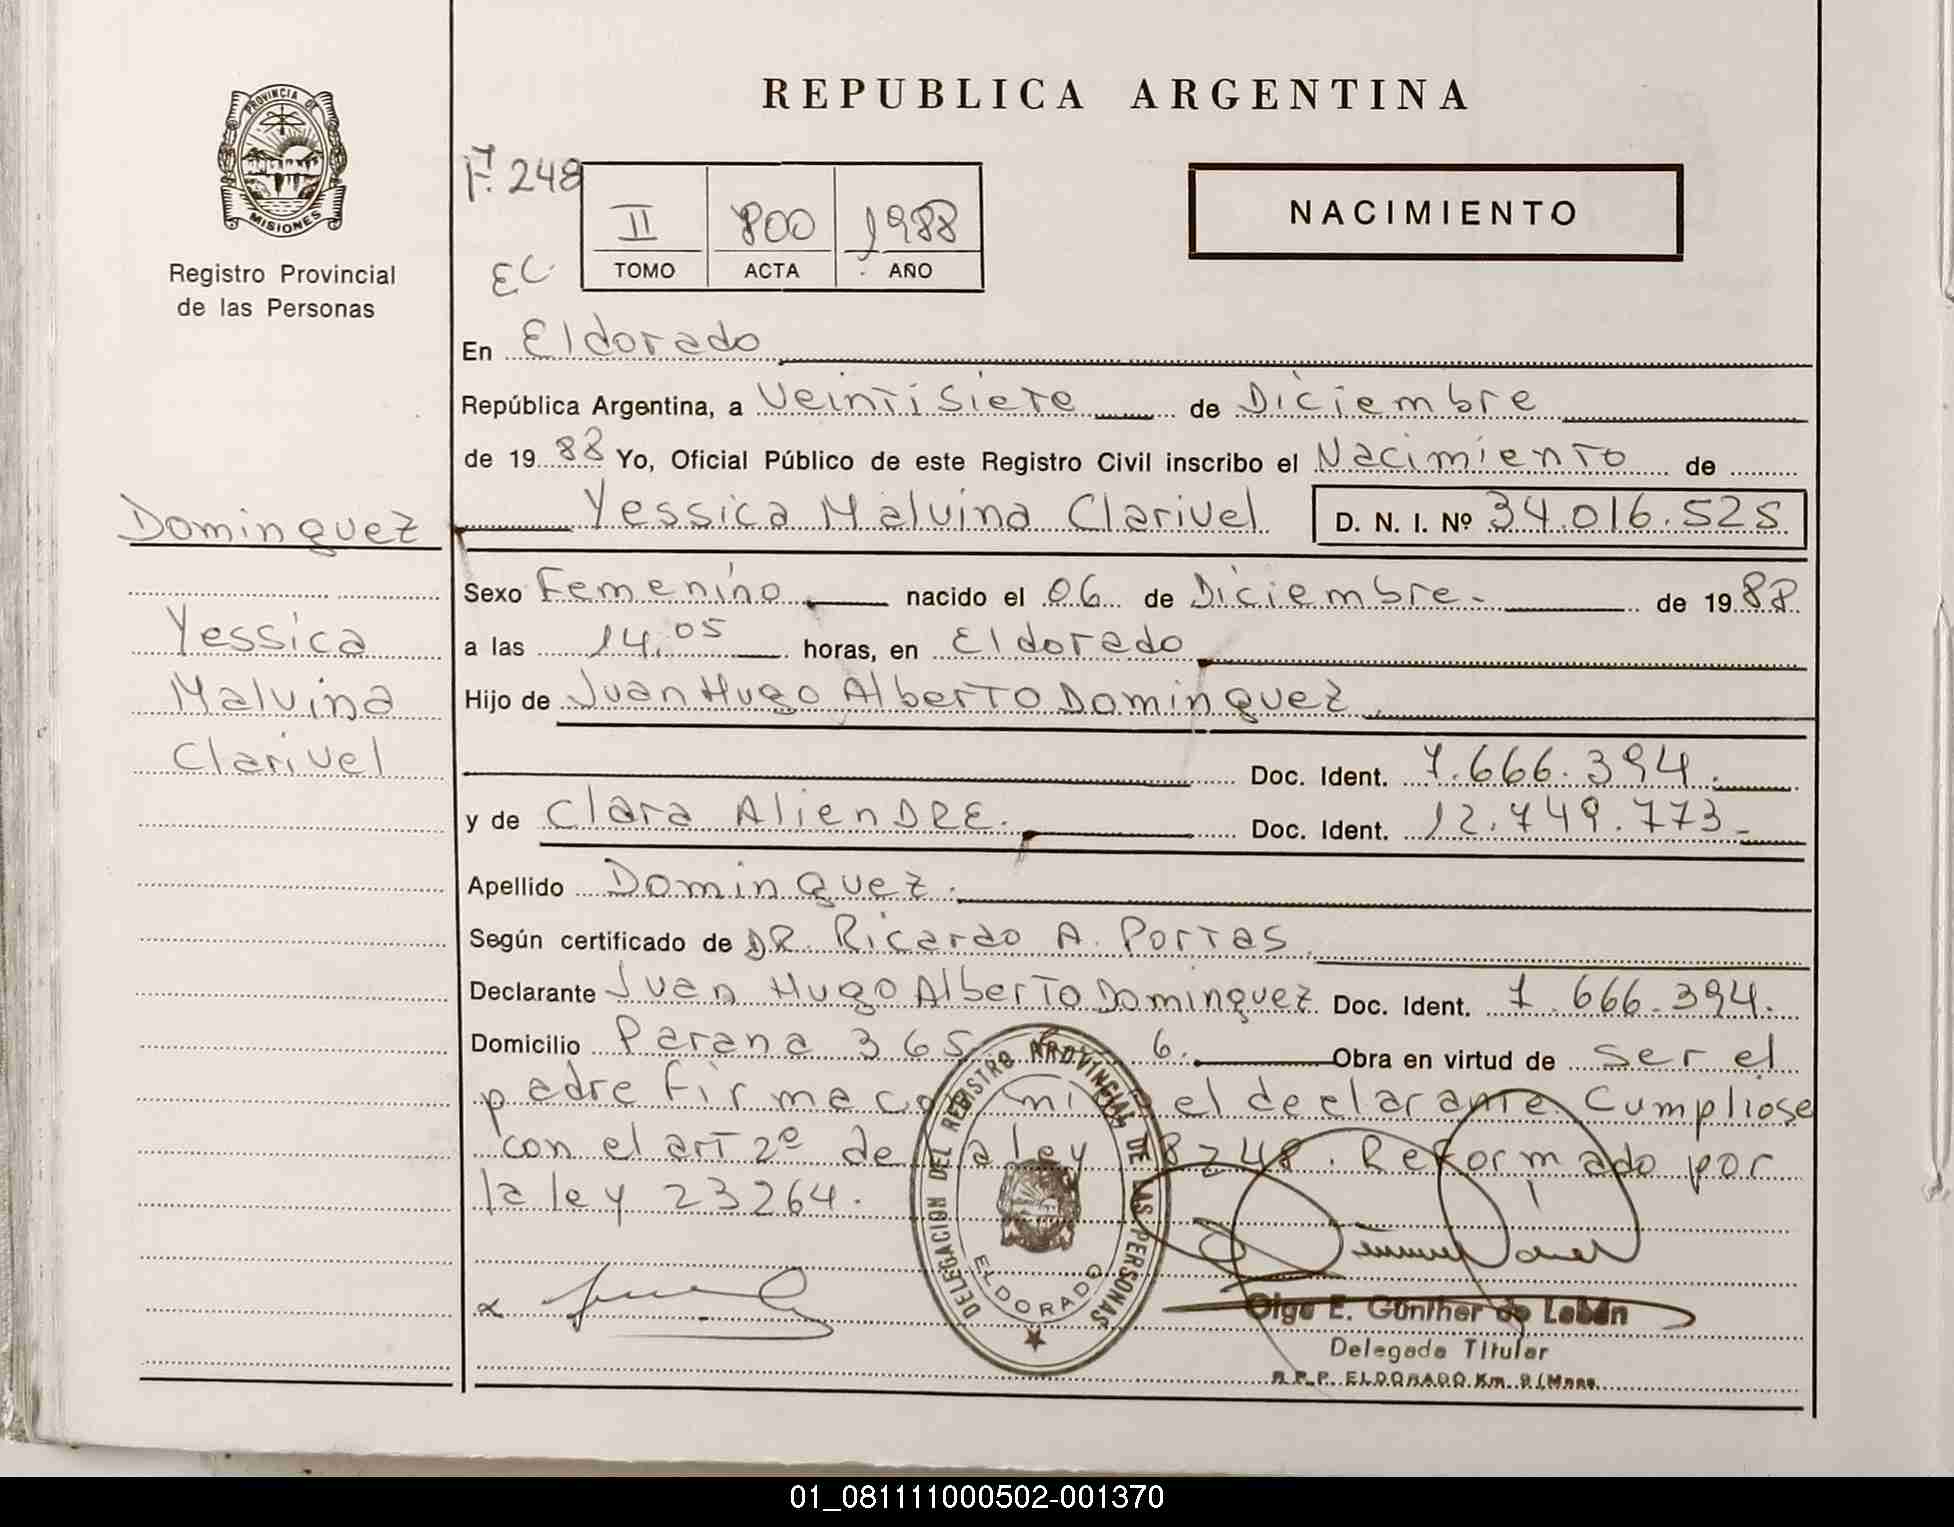 PROVINCIA DE
MISIONES
Registro Provincial
de las Personas
REPUBLICA ARGENTINA
F. 248
II 800 1988
TOMO ACTA AÑO
EC
NACIMIENTO
En Eldorado
República Argentina, a Veintisiete de Diciembre
de 1988 Yo, Oficial Público de este Registro Civil inscribo el Nacimiento de
Yessica Malvina Clarivel D. N. I. Nº 34.016.525
Dominguez
Yessica
Malvina
Clarivel
Sexo Femenino nacido el 06 de Diciembre.- de 1988
a las 14.05 horas, en Eldorado
Hijo de Juan Hugo Alberto Dominguez.
Doc. Ident. 7.666.394.
y de Clara AlienDRE. Doc. Ident. 12.749.773.-
Apellido Dominguez.
Según certificado de DR. Ricardo A. Portas.
Declarante Juan Hugo Alberto Dominguez Doc. Ident. 7.666.394.
Domicilio Parana 365 6. Obra en virtud de ser el
padre firma mi el declarante. Cumpliose
con el art 2º de la ley 18248. Reformado por
la ley 23264.
DELEGACION DEL REGISTRO PROVINCIAL DE LAS PERSONAS
ELDORADO
Olga E. Günther de
Delegada Titular
R.P.P. ELDORADO Km. 9 (Mnes.
01_081111000502-001370